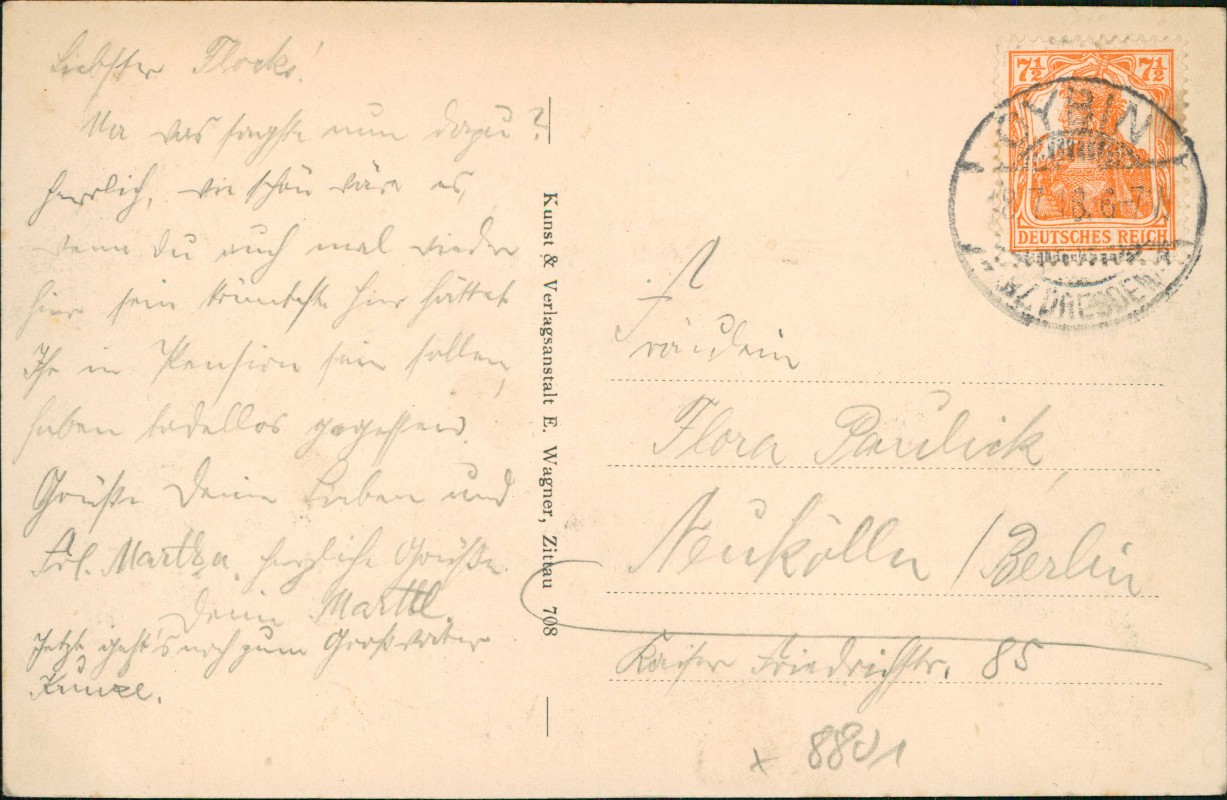 Liebster Flocki!
Na was sagste nun dazu?
herrlich, wie schön wäre es,
wenn Du auch mal wieder
hier sein könntest hier hättet
Ihr in Pension sein sollen,
haben tadellos gegessen.
Grüße Deine Lieben und
Frl. Martha, herzliche Grüße
Deine Martel.
Jetzt geht's noch zum Großvater
Kunze.
Kunst & Verlagsanstalt E. Wagner, Zittau 708
7½ 7½
DEUTSCHES REICH
OYBIN
7.18. 6-7
DRESDEN
Fräulein
Flora Paulick,
Neukölln / Berlin
Kaiser Friedrichstr. 85
x 8801